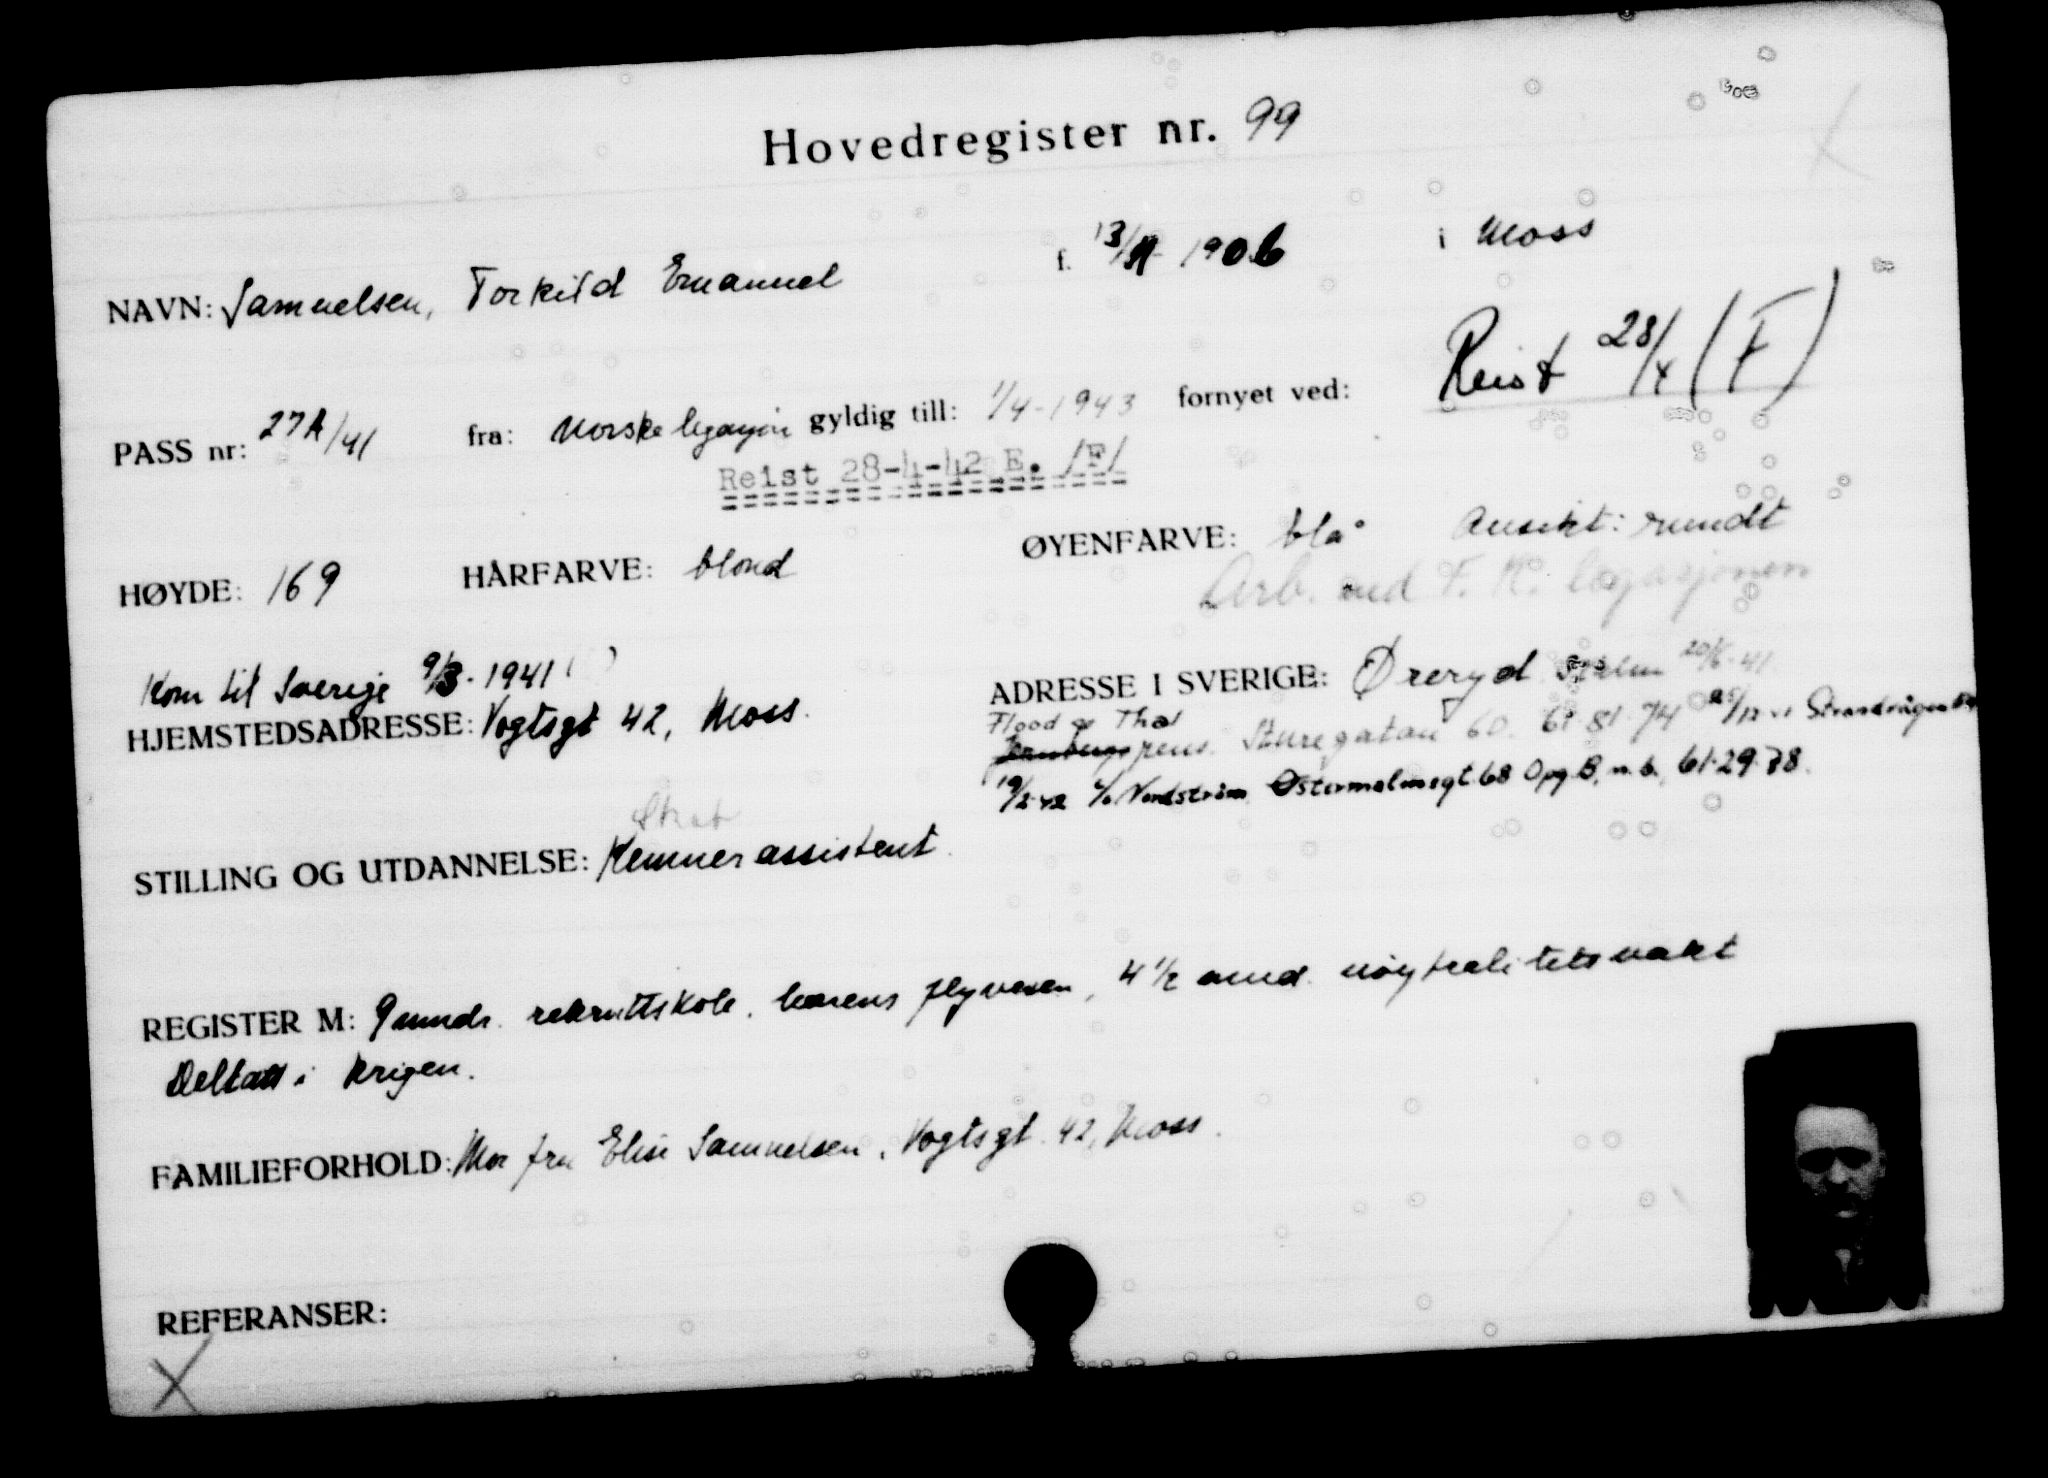 Hovedregister nr. 99
NAVN: Samuelsen, Torkild Emanuel f. 13/11 1906 i Moss
Reist 28/4 (F)
PASS nr: 27A/41 fra: Norske legasjon gyldig till: 1/4-1943 fornyet ved:
Reist 28-4-42 E. /F/
HØYDE: 169 HÅRFARVE: blond ØYENFARVE: blå Ansikt: rundt
Arb. ved F. K. legasjonen
Kom til Sverige 9/3-1941
HJEMSTEDSADRESSE: Vogtsgt 42, Moss.
ADRESSE I SVERIGE: Øreryd 20/6-41
Flood & Thal
pens. Sturegatan 60. 61 81 74 25/12 41 Strandvägen
19/2-42 c/o Nordström Østermalmsgt 68 Opg. B, n. b. 61.29.78.
Skat
STILLING OG UTDANNELSE: Kemnerassistent.
REGISTER M: 9 mndr. rekruttskole, hærens flyvesen, 4 1/2 mnd. nøytralitetsvakt
Deltatt i krigen.
FAMILIEFORHOLD: Mor fru Elise Samuelsen, Vogtsgt. 42, Moss.
REFERANSER: